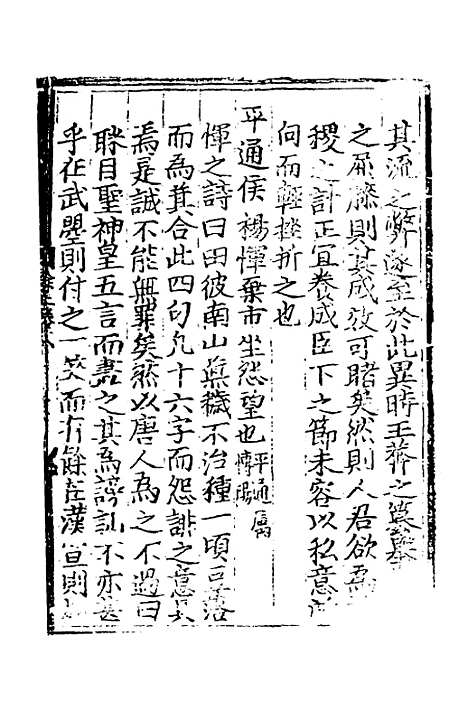 其流之弊遂至於此異時王莽之篡
之所滕則其成效可睹矣然則人君欲為
稷之計正宜養成臣下之節未容以私意
向而輕挫折之也
平通侯楊惲棄市坐怨望也平通屬博陽
惲之詩曰田彼南山蕪穢不治種一頃豆落
而為萁合此四句凡十六字而怨誹之意
焉是誠不能無罪矣然以唐人為之不過曰
眯目聖神皇五言而盡之其為謗訕不亦甚
乎在武曌則付之一笑而有餘在漢宣則